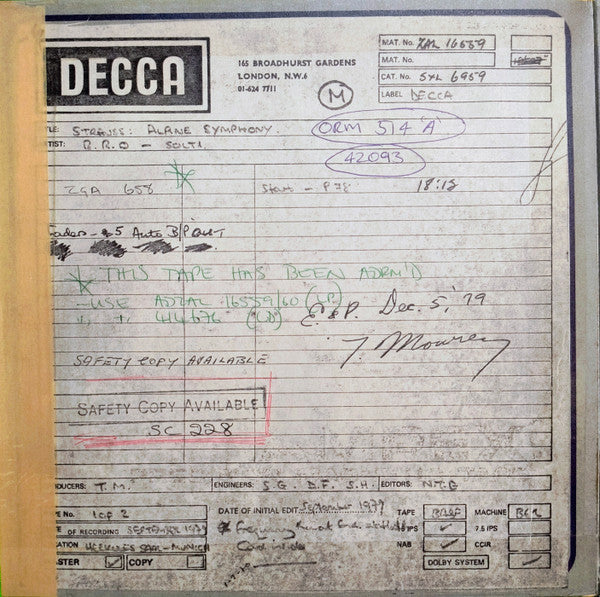 DECCA
165 BROADHURST GARDENS
LONDON, N.W.6
01-624 7711
M
MAT. No. ZAL 16559
MAT. No.
CAT. No. SXL 6959
LABEL DECCA
TLE: STRAUSS: ALPINE SYMPHONY.
TIST: B.R.O - SOLTI
ORM 514 'A'
42093
ZGA 658
Start - P78
18:12
Fader - 5 Auto B/P OUT
THIS TAPE HAS BEEN ADRM'D
- USE ADZAL 16559/60 (LP)
" " 414676 (CD)
E&P. Dec. 5, '79
T. Mowrey
SAFETY COPY AVAILABLE
SAFETY COPY AVAILABLE
SC 228
DUCERS: T.M.
ENGINEERS: S.G. D.F. S.H.
EDITORS: N.T.G
PE No. 1 OF 2
DATE OF INITIAL EDIT September 1979
TAPE
MACHINE
TE OF RECORDING SEPTEMBER 1979
Frequency
IPS
7.5 IPS
CATION HERKULES SAAL - MUNICH
NAB
CCIR
ASTER
COPY
DOLBY SYSTEM